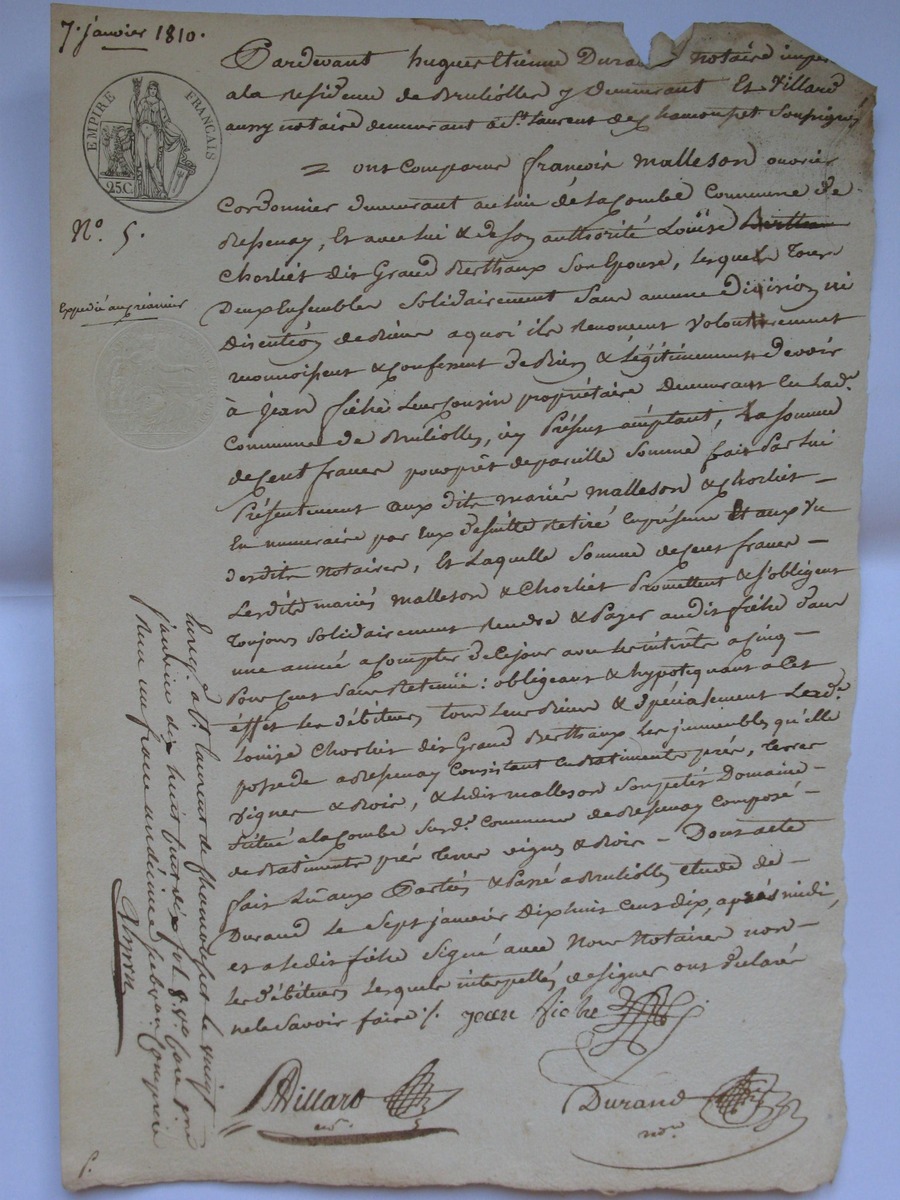 7. janvier 1810.
EMPIRE FRANÇAIS
25.C.
Nº. 5.
Expédié au créancier
Pardevant hugues Etienne Durand notaire impé
a la residence de Brulioller y demeurant Et Villard
aussy notaire demeurant a St. Laurent de Chamousset Soussignés
ont comparus françois Malleson ouvrier
Cordonnier demeurant au lieu de la Combe Commune de
Bessenay, Et avec lui & de son authorité Louïse
Chorliét dit Grand Berthaux son Epouse, lesquels Tous
Deux Ensembles Solidairement Sans aucune division ni
Discution de Biens a quoi ils Renoncent volontairement
reconnoissent & Confessent de Bien & Légitimement devoir
à jean fiché Leur Cousin propriétaire demeurant En lad.e
Commune de Brulioller, icy Présent acceptant, La Somme
de Cent francs pour prêt de pareille Somme fait Par lui
Présentement aux dits mariés Malleson & Chorliét
En numeraire par Eux de suitte Retiré En présence Et aux Vu
desdits Notaires, Et Laquelle Somme de Cent francs
Lesdits mariés Malleson & Chorliét Promettent & s'obligent
Toujours Solidairement Rendre & Payer audit fiché Dans
une année a Compter de Ce jour avec les intérêts a Cinq
Pour Cent Sans Retenüe : obligeant & hypotéquant a Cet
éffet les débiteurs tous Leurs Biens & Spécialement Lad.e
Louïse Chorliét dit Grand Berthaux les immeubles qu'elle
possede a Bessenay Consistant En Batiments prés, Terres
Vignes & Bois, & ledit Malleson Son petit Domaine
Situé a la Combe Susd.e Commune de Bessenay Composé
de Batiments prés Terres vignes & Bois — Dont acte
fait Lu aux Parties & Passé a Brulioller étude de
Durand le Sept janvier Dix huit Cent dix, après midi,
et a ledit fiché Signé avec Nous Notaires non
les débiteurs Lesquels interpellés de signer ont déclaré
ne le Savoir faire /. jean fiche
Villard
Durand
not.re
Enreg. a St. laurent de Chamousset le vingt
janvier dix huit cent dix fol. 8
Reçu un franc un décime Subvon. Comprise